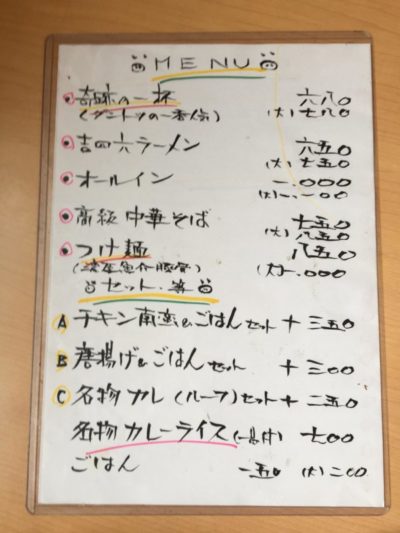 MENU
奇跡の一杯 六八〇
(大) 七八〇
吉四六ラーメン 六五〇
(大) 七五〇
オールイン 一.〇〇〇
(大) 一.一〇〇
高級中華そば 七五〇
(大) 八五〇
つけ麺 八五〇
(濃厚魚介豚骨) (大) 一.〇〇〇
セット・等
A チキン南蛮&ごはんセット + 三五〇
B 唐揚げ&ごはんセット + 三〇〇
C 名物カレー(ハーフ)セット + 二五〇
名物カレーライス 七〇〇
ごはん 一五〇 (大) 二〇〇